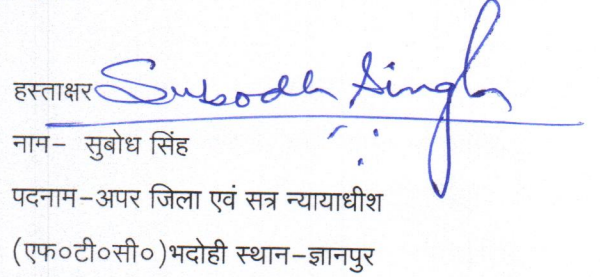 हस्ताक्षर Subodh Singh
नाम- सुबोध सिंह
पदनाम-अपर जिला एवं सत्र न्यायाधीश
(एफ०टी०सी०)भदोही स्थान-ज्ञानपुर